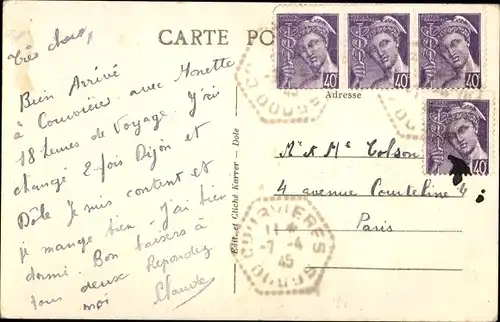 CARTE PO
Très chers,
Bien Arrivé
à Couvières avec Monette
18 heures de voyage. J'ai
changé 2 fois Dijon et
Dôle Je suis content et
je mange bien j'ai bien
dormi. Bon baisers à
tous deux Répondez
moi Claude
Edit. et Cliché Karrer - Dole
40
40
40
40
Adresse
Mr & Me Colson
4 avenue Courteline 4
Paris
7-4
45
DOUBS